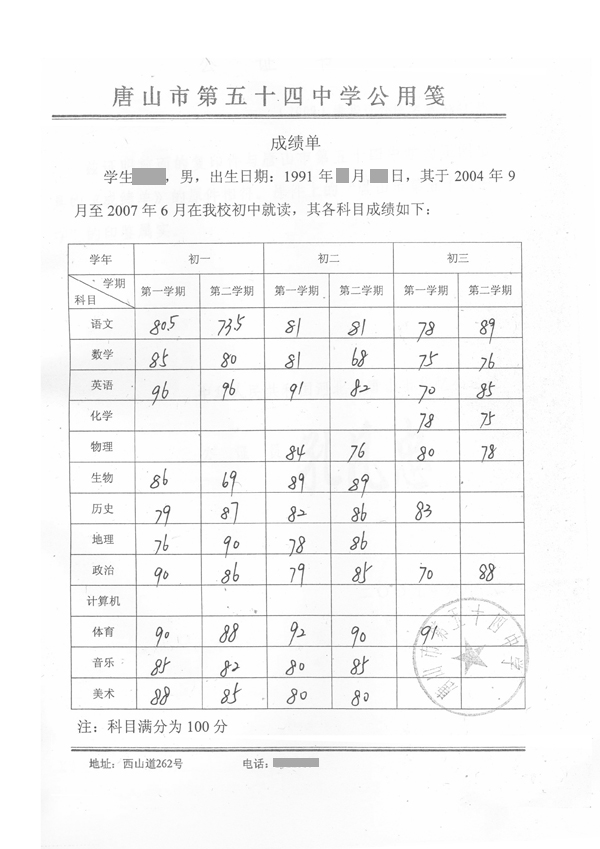 唐山市第五十四中学公用笺
成绩单
学生，男，出生日期：1991 年 月 日，其于 2004 年 9
月至 2007 年 6 月在我校初中就读，其各科目成绩如下：
学年 初一 初二 初三
学期
科目 第一学期 第二学期 第一学期 第二学期 第一学期 第二学期
语文 80.5 73.5 81 81 78 89
数学 85 80 81 68 75 76
英语 96 96 91 82 70 85
化学 78 75
物理 84 76 80 78
生物 86 69 89 89
历史 79 87 82 86 83
地理 76 90 78 86
政治 90 86 79 85 70 88
计算机
体育 90 88 92 90 91
音乐 85 82 80 85
美术 88 85 80 80
唐山市第五十四中学
注：科目满分为 100 分
地址：西山道262号 电话：